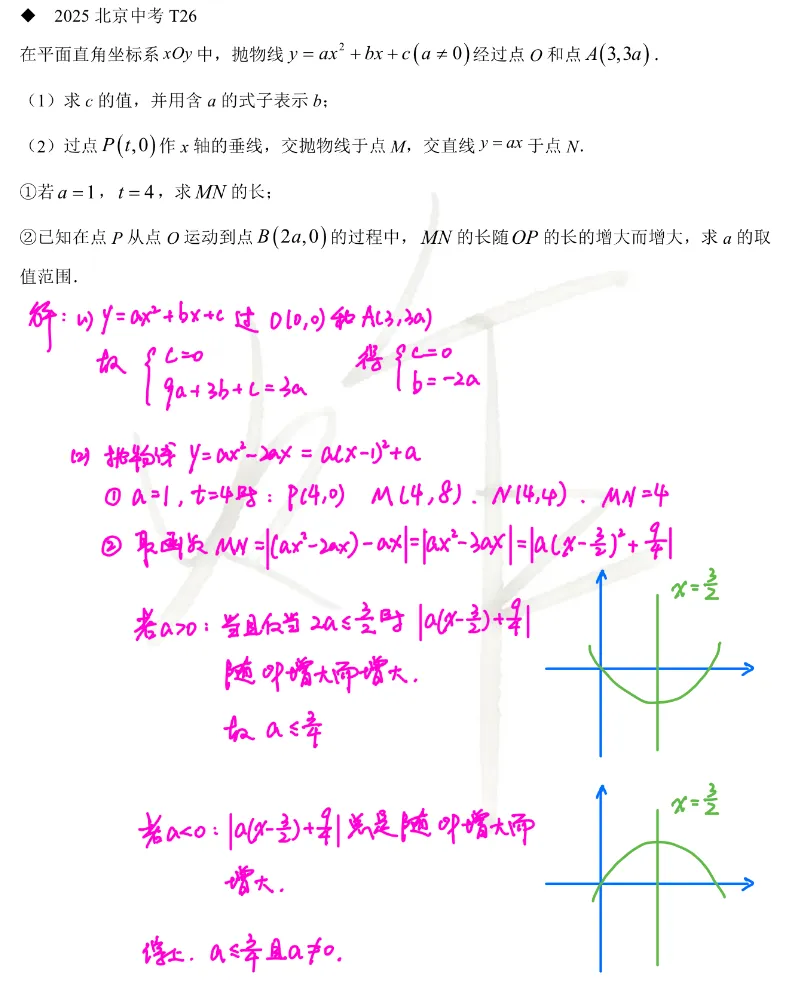 ◆ 2025 北京中考 T26
在平面直角坐标系 xOy 中，抛物线 y = ax² + bx + c (a ≠ 0) 经过点 O 和点 A(3,3a)．
（1）求 c 的值，并用含 a 的式子表示 b；
（2）过点 P(t,0) 作 x 轴的垂线，交抛物线于点 M，交直线 y = ax 于点 N．
①若 a = 1，t = 4，求 MN 的长；
②已知在点 P 从点 O 运动到点 B(2a,0) 的过程中，MN 的长随 OP 的长的增大而增大，求 a 的取
值范围．
解：(1) y=ax²+bx+c 过 O(0,0) 和 A(3,3a)
故 { c=0 得 { c=0
9a+3b+c=3a b=-2a
(2) 抛物线 y=ax²-2ax = a(x-1)²+a
① a=1, t=4时：P(4,0) M(4,8). N(4,4). MN=4
② 取函数 MN=|(ax²-2ax)-ax|=|ax²-3ax|=|a(x-3/2)²+9/4|
x=3/2
若a>0：当且仅当 2a≤3/2时 |a(x-3/2)+9/4|
随OP增大而增大.
故 a≤3/4
x=3/2
若a<0：|a(x-3/2)+9/4|总是随OP增大而
增大.
综上. a≤3/4且a≠0.